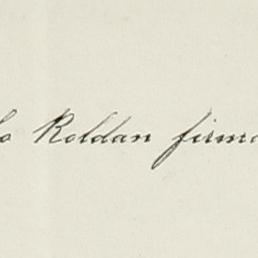 lo Roldan firma